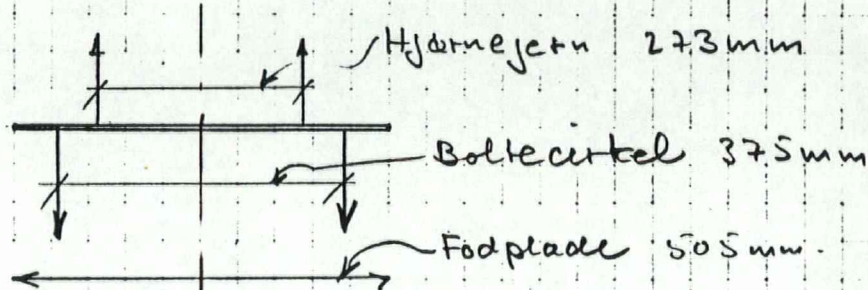 Hjørnejern 273mm
Boltecirkel 375mm
Fodplade 505mm.